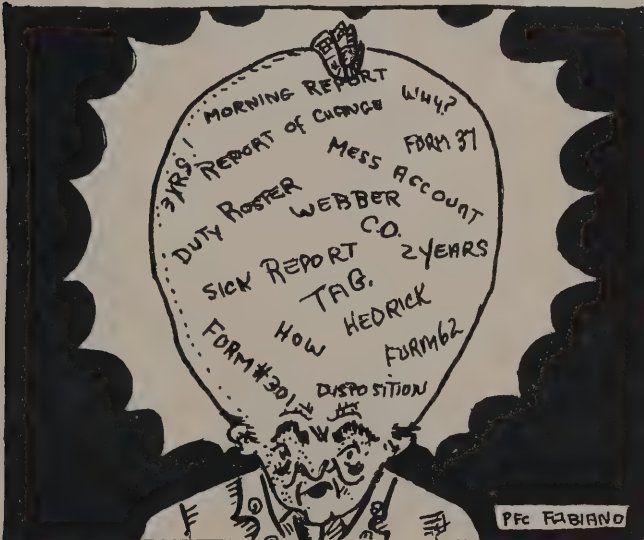 MORNING REPORT
WHY?
3 YRS!
REPORT OF CHANGE
FORM 37
MESS ACCOUNT
DUTY ROSTER
WEBBER
C.O.
2 YEARS
SICK REPORT
TAG.
HEDRICK
HOW
FORM 62
FORM #301
DISPOSITION
PFC FABIANO